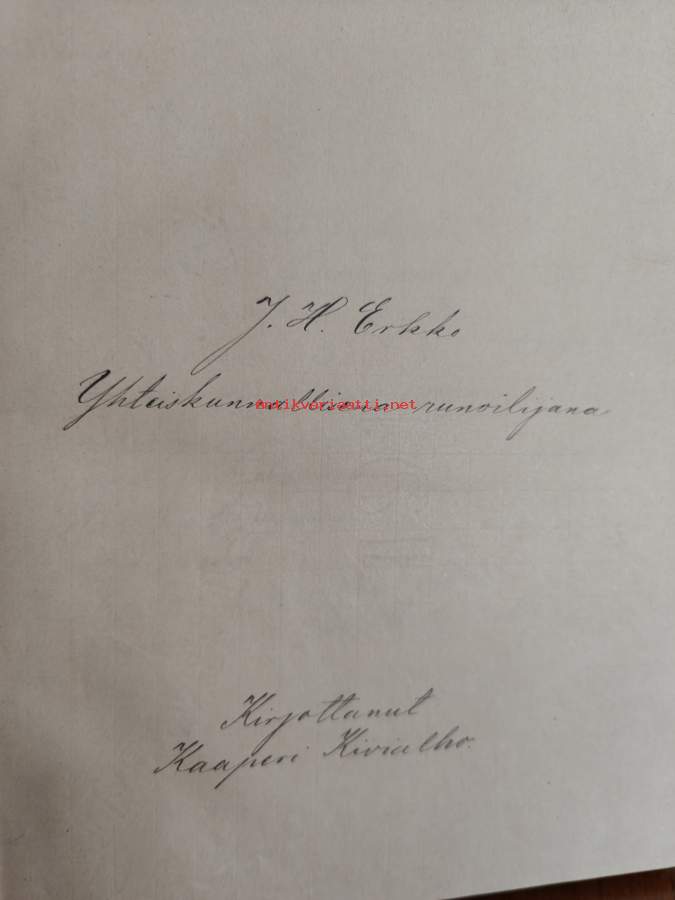 J. H. Erkko
Yhteiskunnallisena runoilijana
antikvariaatti.net
Kirjottanut
Kaaperi Kivialho.